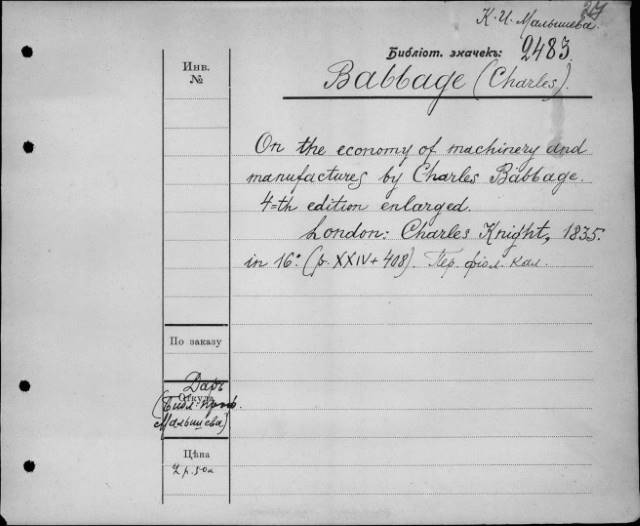 27
К. И. Малышева.
Библіот. значекъ: 2483
Инв.
№
Babbage (Charles).
On the economy of machinery and
manufactures by Charles Babbage.
4=th edition enlarged.
London: Charles Knight, 1835.
in 16°. (p. XXIV + 408). Пер. фіол. кал.
По заказу
Даръ
Откуда
(Библ. проф.
Малышева)
Цѣна
2 р. 50 к